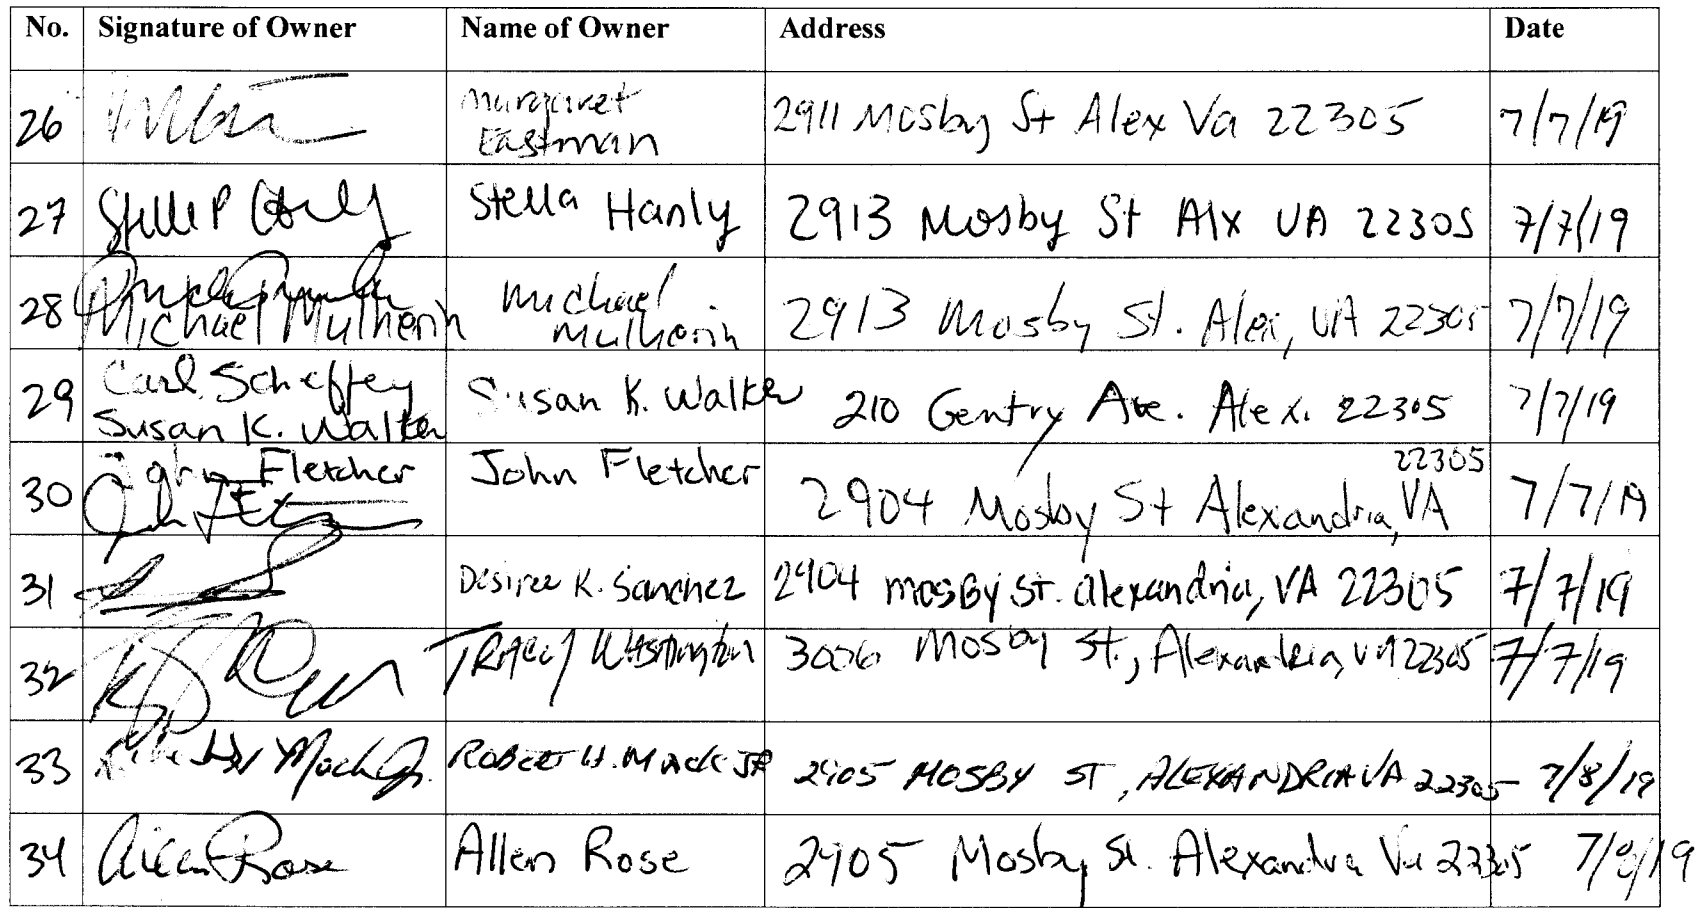 No. Signature of Owner Name of Owner Address Date
26 Margaret Eastman 2911 Mosby St Alex Va 22305 7/7/19
27 Stella Hanly 2913 Mosby St Alx VA 22305 7/7/19
28 Michael Mulherin Michael Mulherin 2913 Mosby St. Alex, VA 22305 7/7/19
29 Carl Scheffey Susan K. Walker Susan K. Walker 210 Gentry Ave. Alex. 22305 7/7/19
30 John Fletcher John Fletcher 2904 Mosby St Alexandria, VA 22305 7/7/19
31 Desiree K. Sanchez 2904 mosby St. alexandria, VA 22305 7/7/19
32 Tracy Washington 3006 Mosby St., Alexandria, VA 22305 7/7/19
33 Robert H. Mack JR 2905 MOSBY ST, ALEXANDRIA VA 22305 7/8/19
34 Allen Rose Allen Rose 2905 Mosby St. Alexandria Va 22305 7/8/19